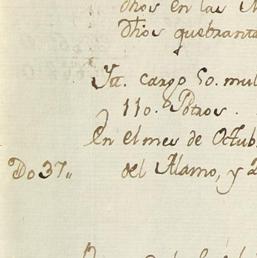 dhos en las
Dhos quebranta
Ytt. cargo 50. mul
y 110. Potros.
En el mes de Octub
Do 37,, del Alamo, y 2